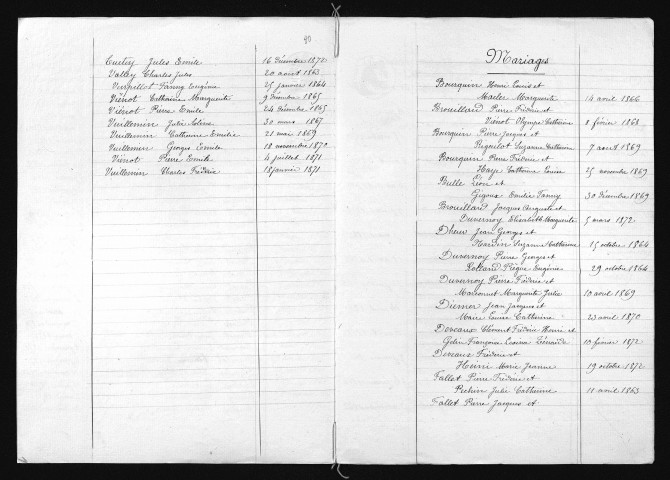 Jules Emile 16 Décembre 1872
Valley Charles Jules 20 août 1863
Verpillot Fanny Eugénie 25 janvier 1864
Viénot Catherine Marguerite 9 Décembre 1865
Viénot Pierre Emile 24 Décembre 1865
Vuillemin Julie 30 mars 1867
Vuillemin Catherine Emélie 21 mai 1869
Vuillemin Georges Emile 18 novembre 1870
Viénot Pierre Emile 4 juillet 1871
Vuillemin Charles Frédéric 18 janvier 1871
Mariages
Bourquin Henri Louis et
Marguerite 14 avril 1866
Brouillard Pierre Frédéric et
Viénot Olympe Catherine 8 février 1868
Bourquin Pierre Jacques et
Suzanne Catherine 7 août 1869
Bourquin Pierre Frédéric et
Haye Catherine Louise 25 novembre 1869
Bulle Léon et
Gigoux Emélie Fanny 30 Décembre 1869
Brouillard Jacques Auguste et
Duvernoy Elisabeth Marguerite 5 mars 1872
Jean Georges et
Nardin Suzanne Catherine 15 octobre 1864
Duvernoy Pierre Georges et
Eugénie 29 octobre 1864
Duvernoy Pierre Frédéric et
Marguerite Julie 10 avril 1869
Diemer Jean Jacques et
Marie Louise Catherine 23 avril 1870
Devaux Clément Frédéric Henri et
Françoise 10 février 1872
Devaux Frédéric et
Marie Jeanne 19 octobre 1872
Fallet Pierre Frédéric et
Julie Catherine 11 avril 1863
Fallet Pierre Jacques et